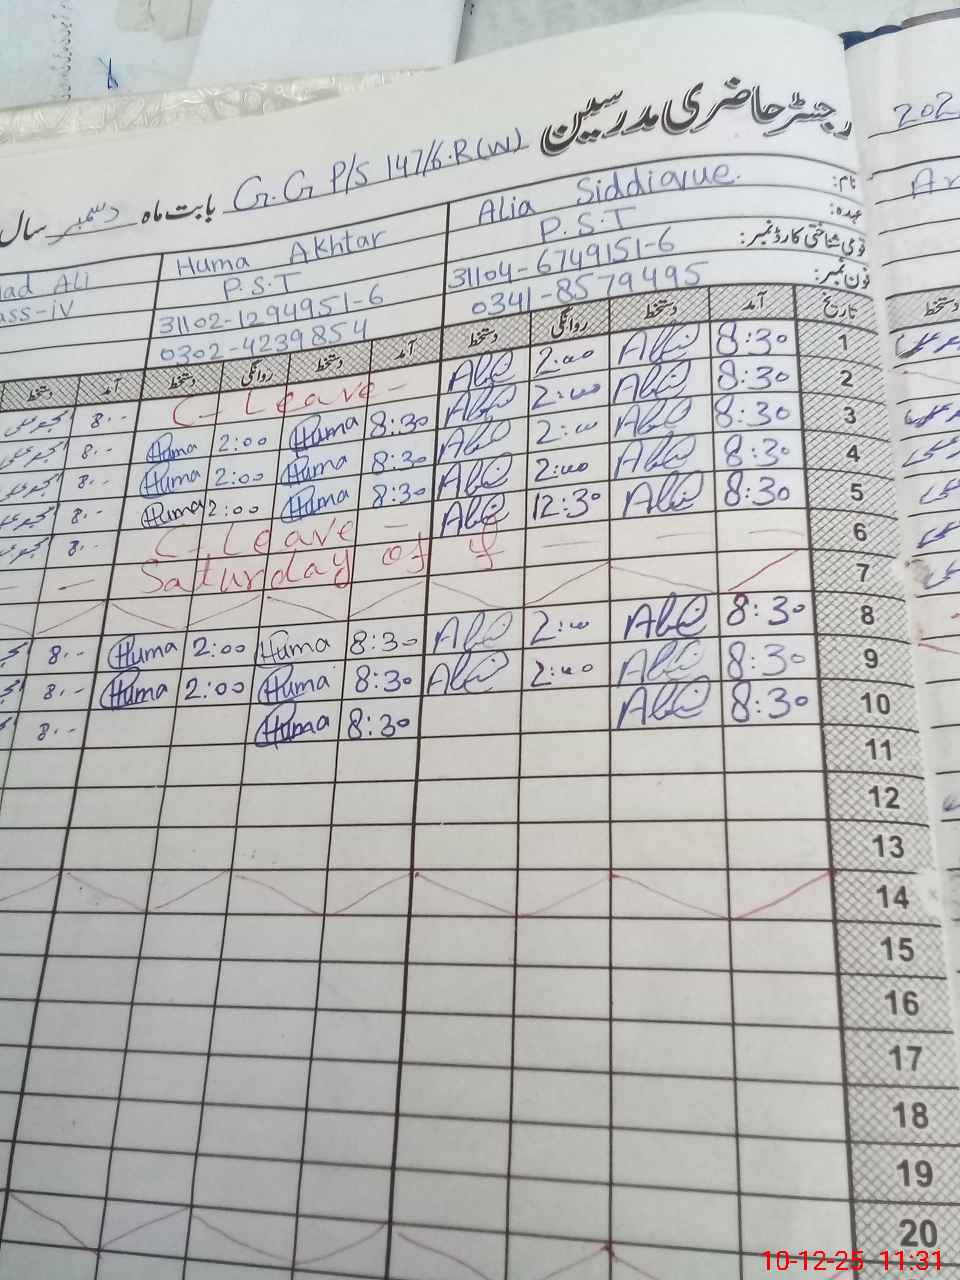 رجسٹر حاضری مدرسین
G.G P/S 147/6.R(W) بابت ماہ دسمبر سال
نام: Alia Siddique. Huma Akhtar Ali
عہدہ: P.S.T P.S.T ass-iv
قومی شناختی کارڈ نمبر: 31104-6749151-6 31102-1294951-6
فون نمبر: 0341-8579495 0302-4239854
تاریخ آمد دستخط روانگی دستخط آمد دستخط روانگی دستخط آمد دستخط
1 8:30 Ali 2:00 Ali C-Leave - 8:00
2 8:30 Ali 2:00 Ali 8:30 Huma 2:00 Huma 8:00
3 8:30 Ali 2:00 Ali 8:30 Huma 2:00 Huma 8:00
4 8:30 Ali 2:00 Ali 8:30 Huma 2:00 Huma 8:00
5 8:30 Ali 12:30 Ali C-Leave - 8:00
6 — — — Saturday off — —
7
8 8:30 Ali 2:00 Ali 8:30 Huma 2:00 Huma 8:00
9 8:30 Ali 2:00 Ali 8:30 Huma 2:00 Huma 8:00
10 8:30 Ali 8:30 Huma 8:00
11
12
13
14
15
16
17
18
19
20
202
دستخط
10-12-25 11:31